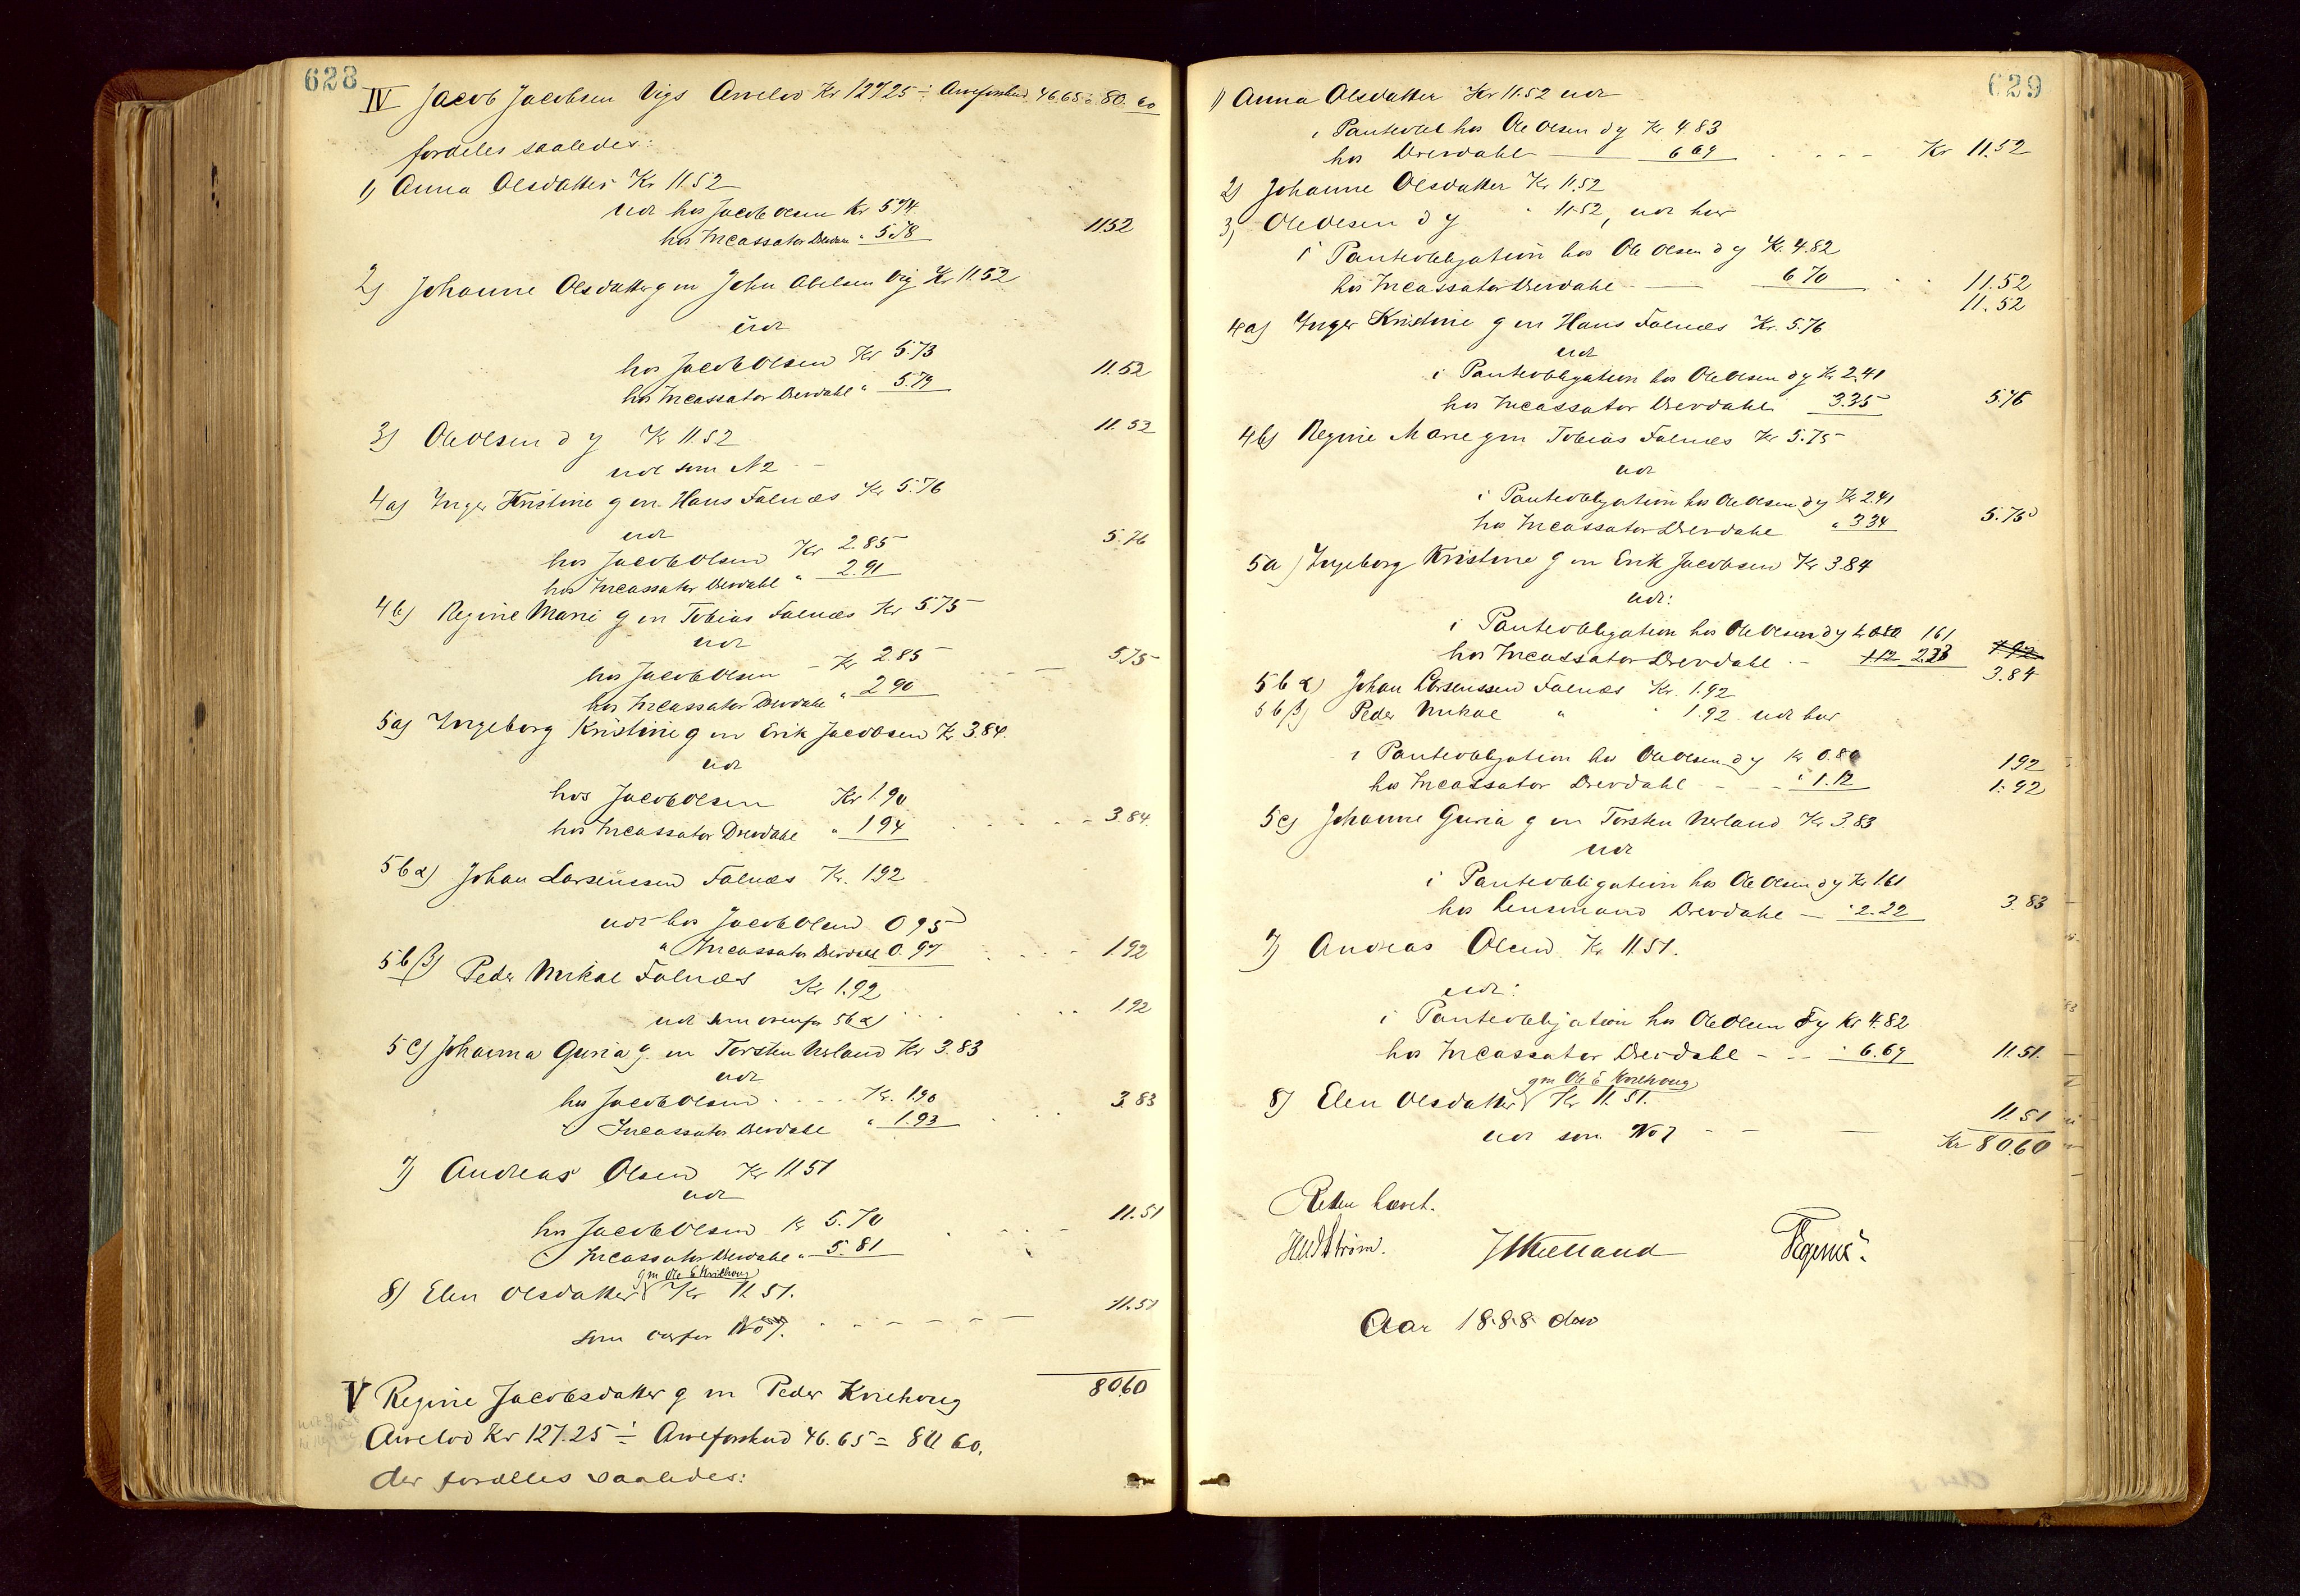 628
IV Jacob Jacobsen Vigs Arvelod Kr 127.25 ÷ Arveforskud 46.65 = 80.60
fordeles saaledes:
1) Anna Olsdatter Kr 11.52
udl hos Jacob Olsen Kr 5.74
hos Incassator Drevdahl " 5.78 11.52
2) Johanne Olsdatter g m John Abelsen Vig Kr 11.52
udl
hos Jacob Olsen Kr 5.73
hos Incassator Drevdahl " 5.79 11.52
3) Ole Olsen d y Kr 11.52 11.52
udl som N 2
4a) Inger Kristine g m Hans Falnæs Kr 5.76
udl
hos Jacob Olsen Kr 2.85 5.76
hos Incassator Drevdahl " 2.91
4b) Regine Marie g m Tobias Falnæs Kr 5.75
udl
hos Jacob Olsen - Kr 2.85 5.75
hos Incassator Drevdahl " 2.90
5a) Ingeborg Kristine g m Erik Jacobsen Kr 3.84.
udl
hos Jacob Olsen Kr 1.90
hos Incassator Drevdahl " 1.94 3.84
5bα) Johan Larseussen Falnæs Kr. 1.92
udl hos Jacob Olsen 0.95
" Incassator Drevdahl 0.97 1.92
5bβ) Peder Mikal Falnæs Kr 1.92
udl som ovenfor 5bα) 1.92
5c) Johanna Guria g. m Torsten Kr 3.83
udl
hos Jacob Olsen Kr. 1.90 3.83
Incassator Drevdahl " 1.93
7) Andreas Olsen Kr 11.51
udl
hos Jacob Olsen Kr 5.70 11.51
Incassator Drevdahl " 5.81
gm Ole E
8) Elen Olsdatter Kr 11.51.
som No 7. 11.51
80.60
V Regine Jacobsdatter g m Peder
Arvelod Kr 127.25 ÷ Arveforskud 46.65 = 80.60.
der fordeles saaledes:
629
1) Anna Olsdatter Kr 11.52 udl
i Panteobl hos Ole Olsen d y Kr. 4.83
hos Drevdahl 6.69 Kr 11.52
2) Johanne Olsdatter Kr 11.52
3) Ole Olsen d y " 11.52, udl hver
i Panteobligation hos Ole Olsen d y Kr. 4.82
hos Incassator Drevdahl 6.70 11.52
11.52
4a) Inger Kristine g m Hans Falnæs Kr. 5.76
udl
i Panteobligation hos Ole Olsen d y Kr 2.41
hos Incassator Drevdahl 3.35 5.76
4b) Regine Marie gm Tobias Falnæs Kr 5.75
udl
i Panteobligation hos Ole Olsen d y Kr 2.41
hos Incassator Drevdahl " 3.34 5.75
5a) Ingeborg Kristine g m Erik Jacobsen Kr 3.84
udl:
i Panteobligation hos Ole Olsen d y 1.61
hos Incassator Drevdahl - 1.12 2.23 1.92
3.84
5bα) Johan Larseussen Falnæs Kr. 1.92
5bβ) Peder Mikal " " 1.92 udl hver
i Panteobligation hos Ole Olsen d y Kr 0.80 1.92
hos Incassator Drevdahl " 1.12 1.92
5c) Johanne Guria g m Torsten Kr 3.83
udl
i Panteobligation hos Ole Olsen d y Kr 1.61
hos Lensmand Drevdahl - " 2.22 3.83
7) Andreas Olsen Kr 11.51.
udl:
i Panteobligation hos Ole Olsen d y Kr 4.82
hos Incassator Drevdahl - " 6.69 11.51
gm Ole E
8) Elen Olsdatter Kr 11.51.
udl som No 7 11.51
Kr 80.60
Retten hævet.
Kielland
Aar 1888 den